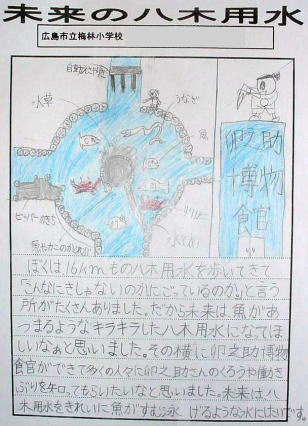 未来の八木用水
広島市立梅林小学校
水草
うなぎ
魚
卯之助
博物
食官
ぼくは、16kmもの八木用水を歩いてきて
所がたくさんありました。だから未来は魚があ
つまるようなキラキラした八木用水になてほ
しいなぁと思いました。その横に卯之助博物
食官ができて多くの人々に卯之助さんのくろうや働き
ぶりを知ってもらいたいなと思いました。未来は八
木用水をきれいに魚がすむ泳げるような水にしたいです。